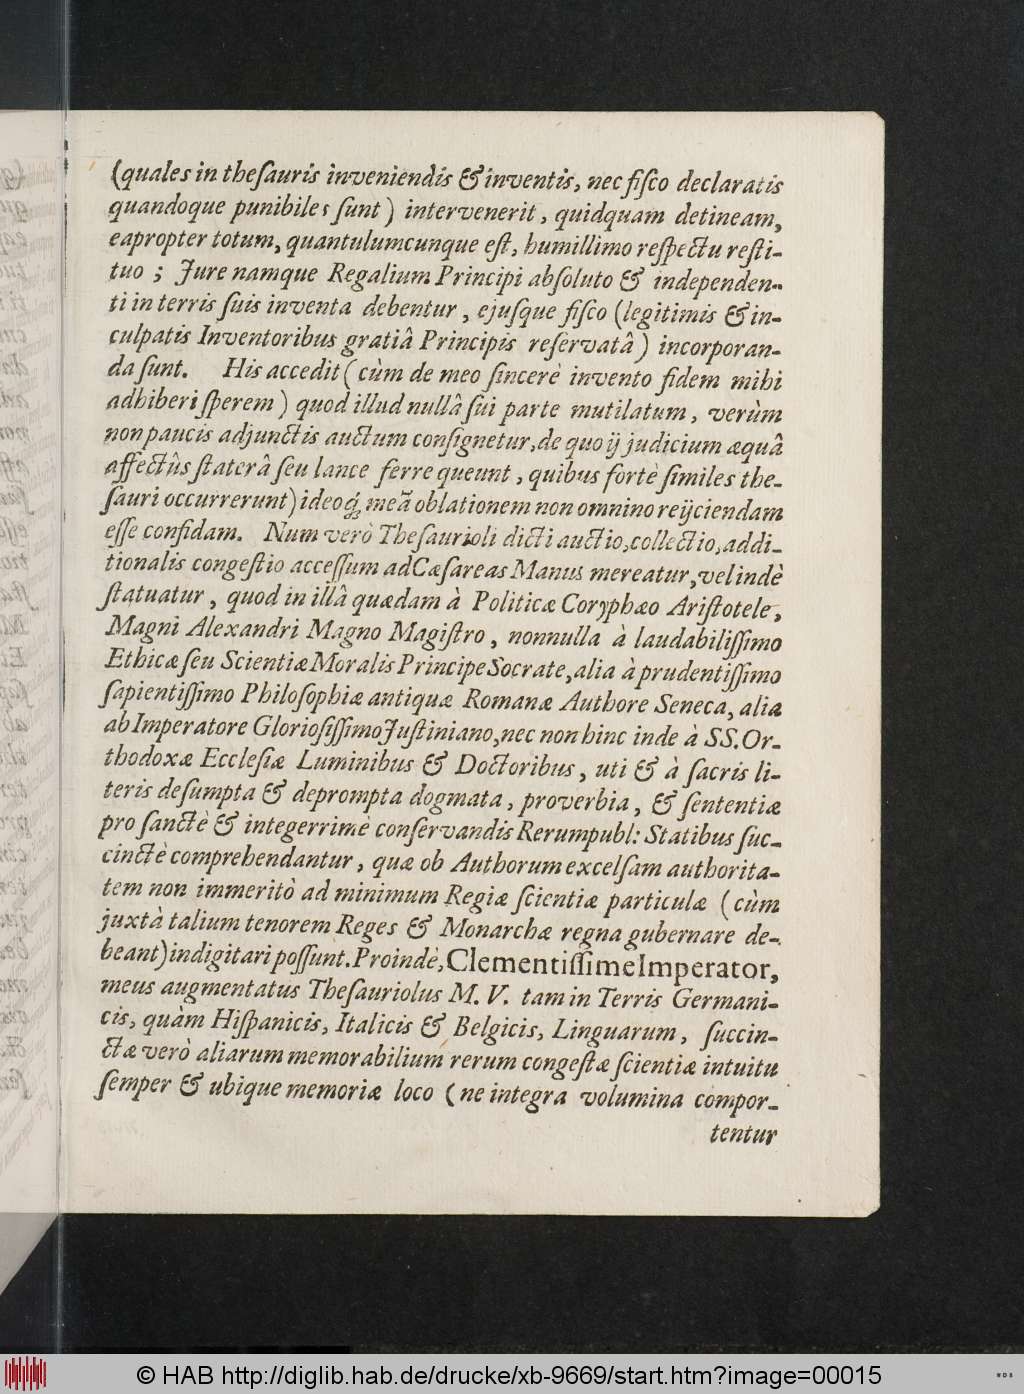 (quales in theſauris inveniendis & inventis, nec fiſco declaratis
quandoque punibiles ſunt) intervenerit, quidquam detineam,
eapropter totum, quantulumcunque eſt, humillimo reſpectu reſti-
tuo; Jure namque Regalium Principi abſoluto & independen-
ti in terris ſuis inventa debentur, ejuſque fiſco (legitimis & in-
culpatis Inventoribus gratiâ Principis reſervatâ) incorporan-
da ſunt. His accedit (cùm de meo ſincerè invento fidem mihi
adhiberi ſperem) quod illud nullâ ſui parte mutilatum, verùm
non paucis adjunctis auctum conſignetur, de quo ij judicium æquâ
affectûs ſtaterâ ſeu lance ferre queunt, quibus fortè ſimiles the-
ſauri occurrerunt) ideoq́; meã oblationem non omnino reijciendam
eſſe confidam. Num verò Theſaurioli dicti auctio, collectio, addi-
tionalis congeſtio acceſſum ad Cæſareas Manus mereatur, vel indè
ſtatuatur, quod in illâ quædam à Politicæ Coryphæo Ariſtotele,
Magni Alexandri Magno Magiſtro, nonnulla à laudabiliſſimo
Ethicæ ſeu Scientiæ Moralis Principe Socrate, alia à prudentiſſimo
ſapientiſſimo Philoſophiæ antiquæ Romanæ Authore Seneca, alia
ab Imperatore Glorioſiſſimo Juſtiniano, nec non hinc inde à SS. Or-
thodoxæ Eccleſiæ Luminibus & Doctoribus, uti & à ſacris li-
teris deſumpta & deprompta dogmata, proverbia, & ſententiæ
pro ſanctè & integerrimè conſervandis Rerumpubl: Statibus ſuc-
cinctè comprehendantur, quæ ob Authorum excelſam authorita-
tem non immeritò ad minimum Regiæ ſcientiæ particulæ (cùm
juxtà talium tenorem Reges & Monarchæ regna gubernare de-
beant) indigitari poſſunt. Proindè, Clementiſſime Imperator,
meus augmentatus Theſauriolus M. V. tam in Terris Germani-
cis, quàm Hiſpanicis, Italicis & Belgicis, Linguarum, ſuccin-
ctæ verò aliarum memorabilium rerum congeſtæ ſcientiæ intuitu
ſemper & ubique memoriæ loco (ne integra volumina compor-
tentur
© HAB http://diglib.hab.de/drucke/xb-9669/start.htm?image=00015